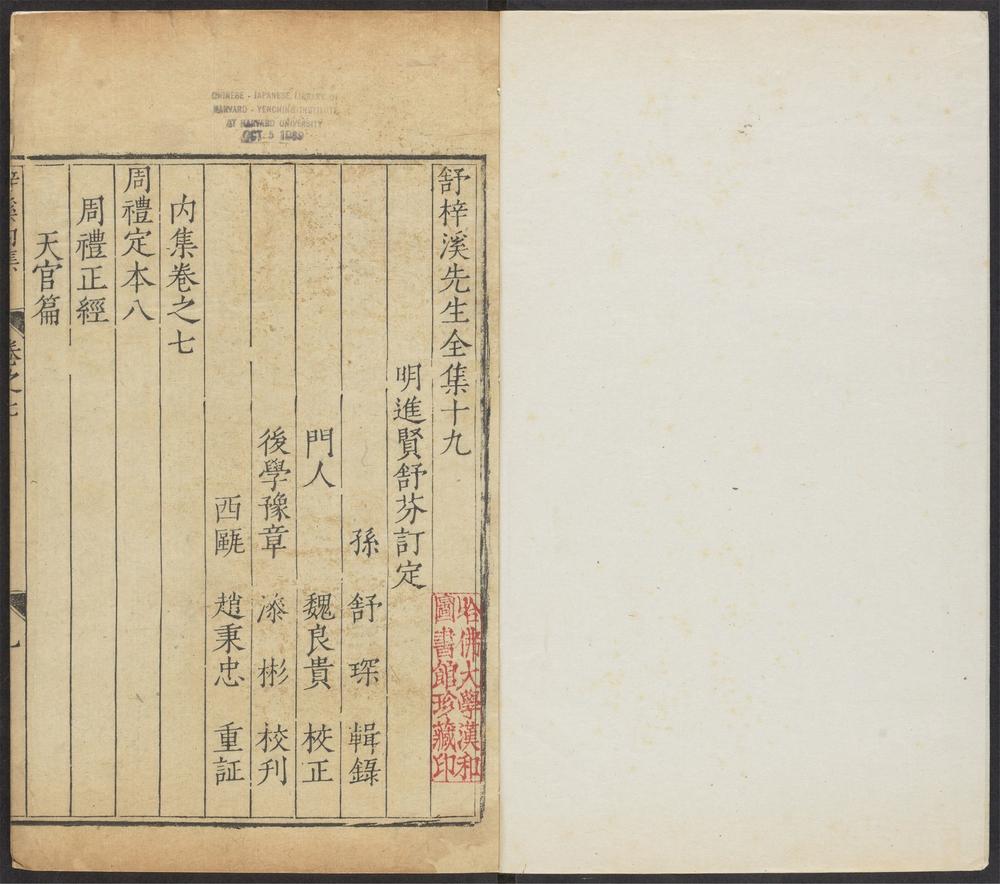 CHINESE - JAPANESE LIBRARY OF
HARVARD - YENCHING INSTITUTE
AT HARVARD UNIVERSITY
OCT 5 1939
舒梓溪先生全集十九
明進賢舒芬訂定
孫 舒琛 輯錄
門人 魏良貴 校正
後學豫章 漆彬 校刊
西甌 趙秉忠 重証
內集卷之七
周禮定本八
周禮正經
天官篇
梓溪內集
卷之七
哈佛大學漢和
圖書館珍藏印